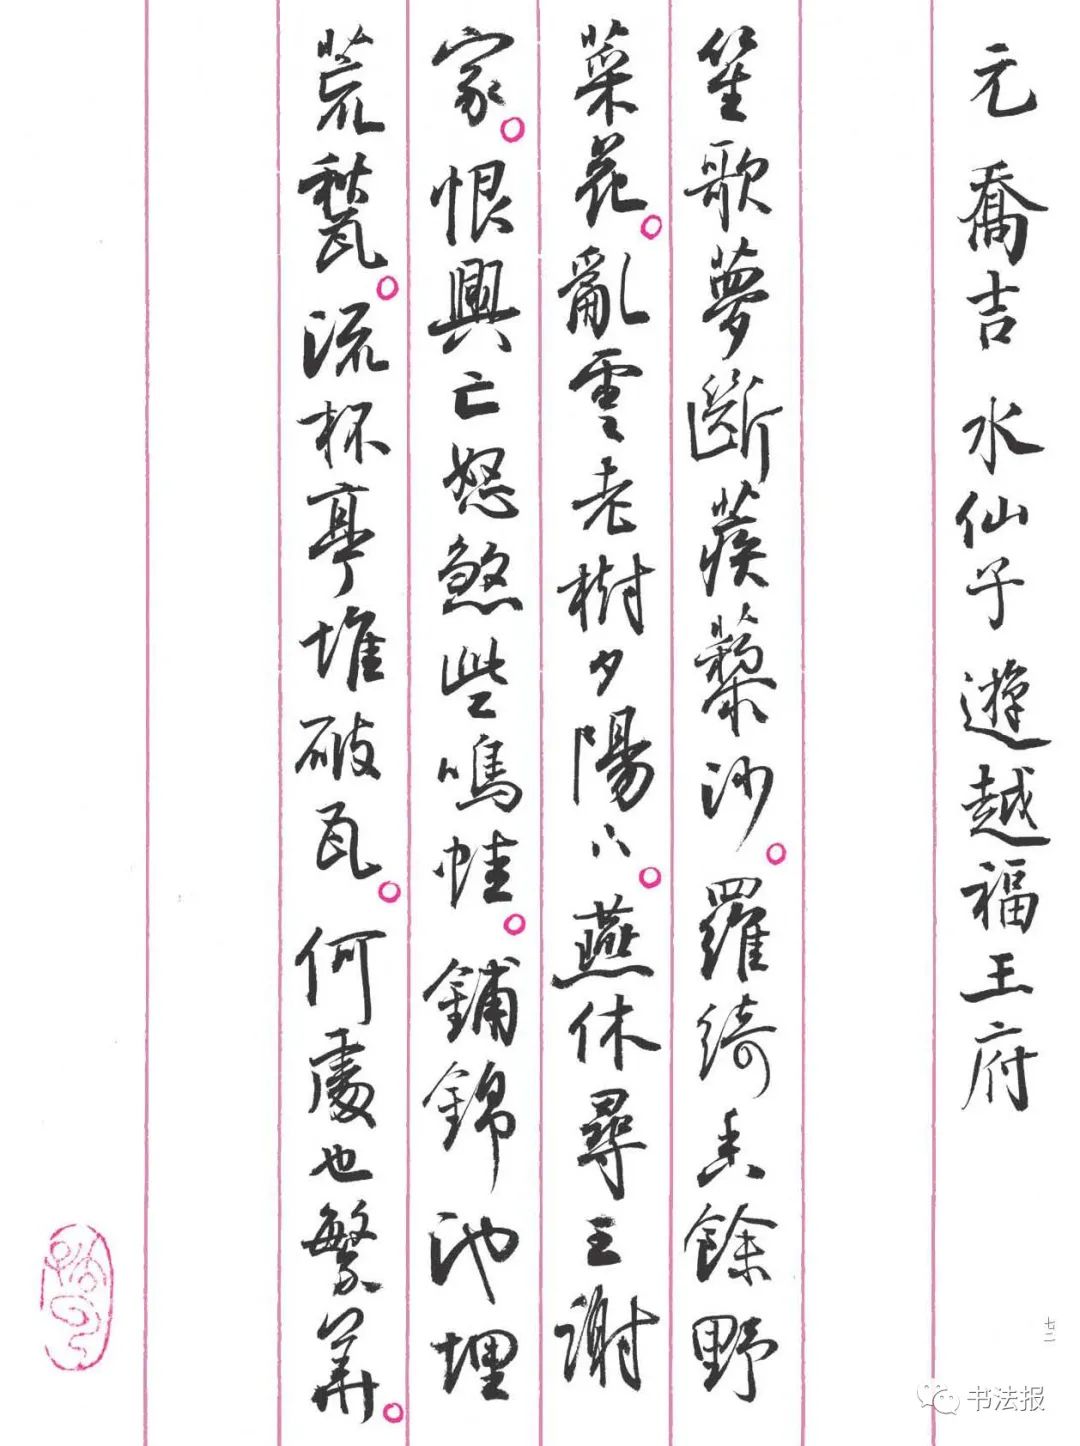 元 喬吉 水仙子 遊越福王府
笙歌夢斷蒺藜沙。羅綺香餘野
菜花。亂雲老樹夕陽下。燕休尋王謝
家。恨興亡怒煞些鳴蛙。鋪錦池埋
荒甃。流杯亭堆破瓦。何處也繁華。
七二
书法报